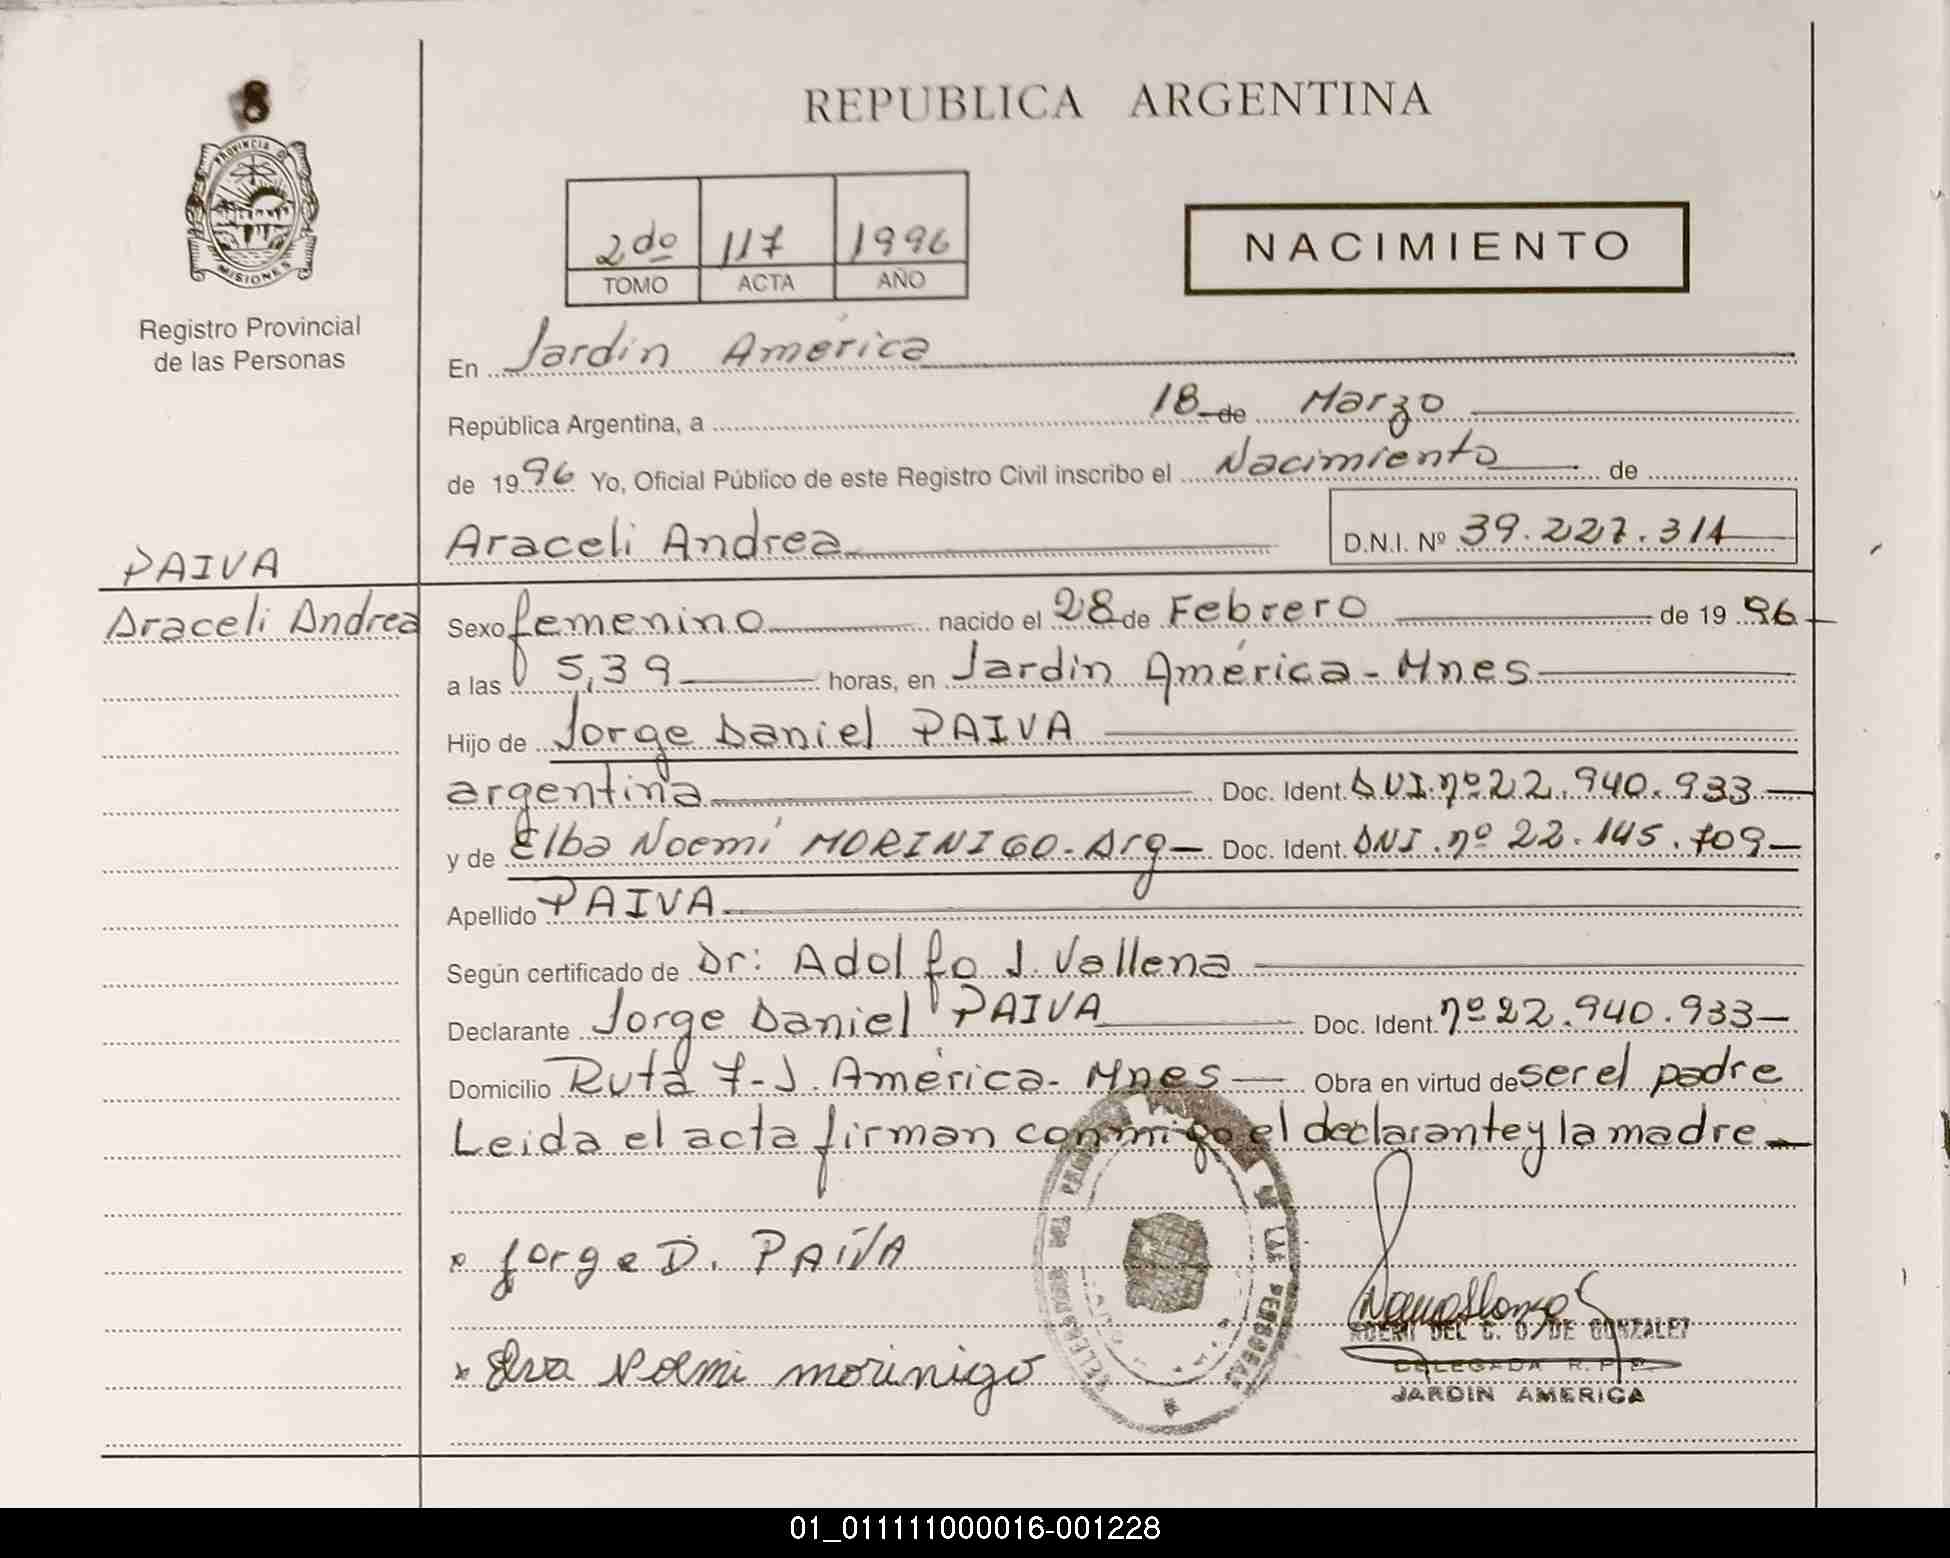 8
PROVINCIA D
MISIONES
Registro Provincial
de las Personas
REPUBLICA ARGENTINA
2do 117 1996
TOMO ACTA AÑO
NACIMIENTO
En Jardín América
República Argentina, a 18 de Marzo
de 1996 Yo, Oficial Público de este Registro Civil inscribo el Nacimiento de
Araceli Andrea D.N.I. Nº 39.227.311
PAIVA
Araceli Andrea
Sexo femenino nacido el 28 de Febrero de 1996
a las 5,39 horas, en Jardín América - Mnes
Hijo de Jorge Daniel PAIVA
argentina Doc. Ident. DNI. nº 22.940.933
y de Elba Noemí MORINIGO - Arg Doc. Ident. DNI. nº 22.145.709
Apellido PAIVA
Según certificado de Dr: Adolfo J. Vallena
Declarante Jorge Daniel PAIVA Doc. Ident. nº 22.940.933
Domicilio Ruta 7 - J. América - Mnes Obra en virtud de ser el padre
Leida el acta firman conmigo el declarante y la madre
Jorge D. PAIVA
DE LAS PERSONAS
DEL C. DE GONZALEZ
DELEGADA R.P.P.
JARDIN AMERICA
Elva Noemi morinigo
01_011111000016-001228